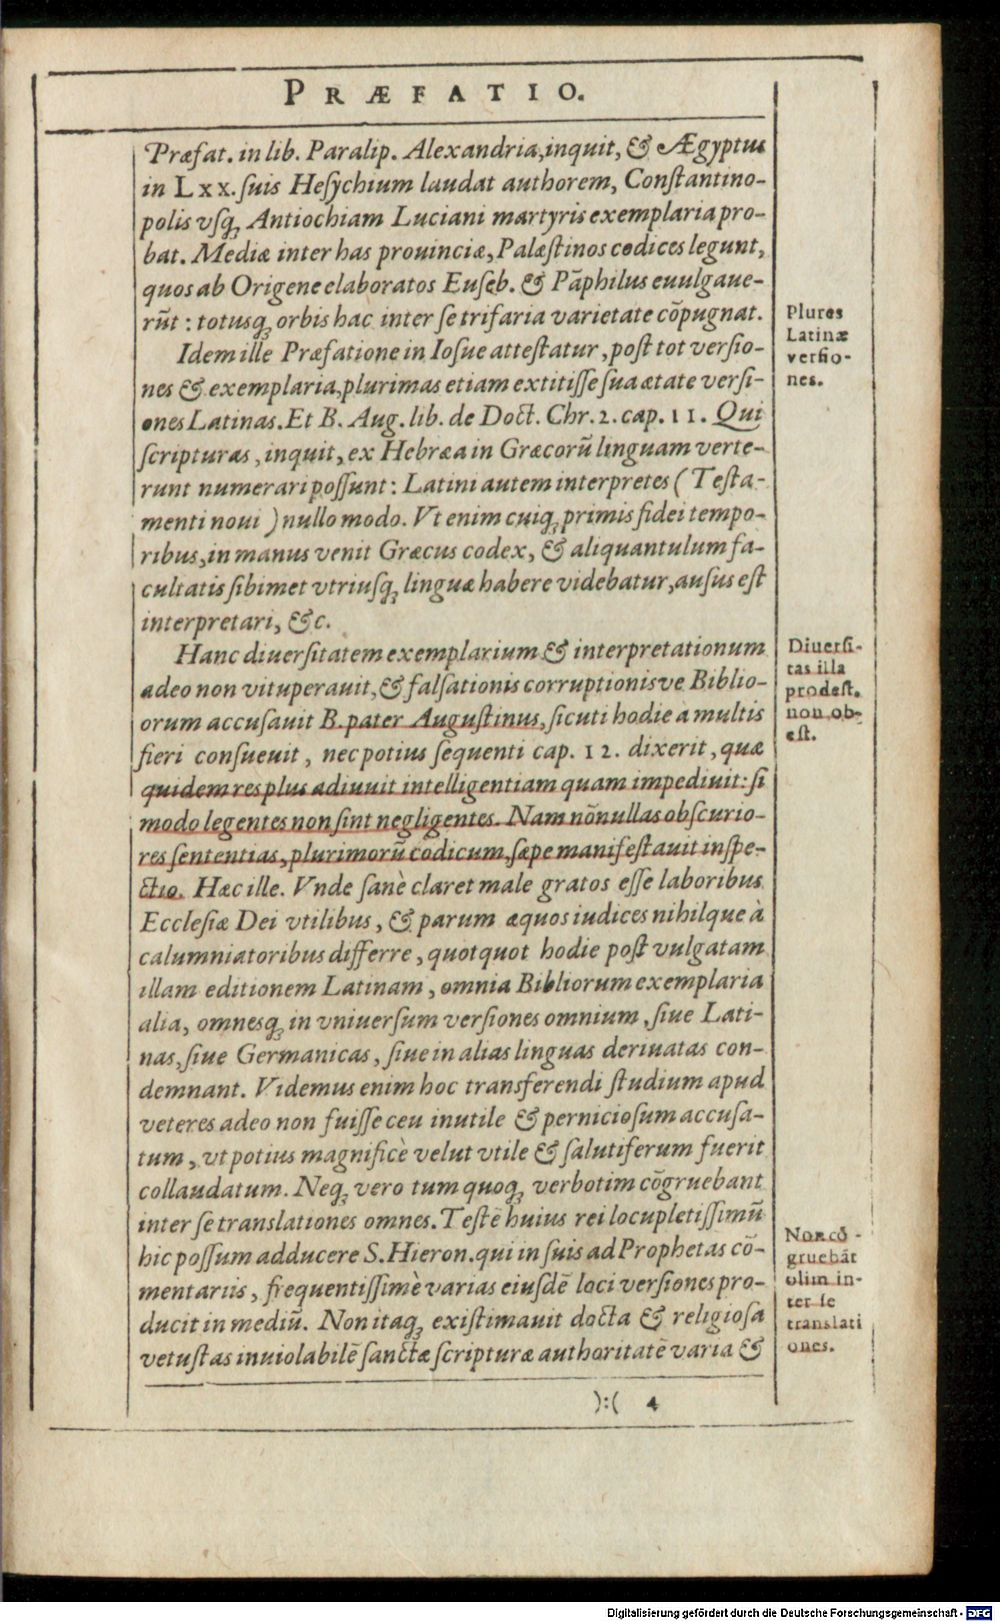 PRÆFATIO.
Præfat. in lib. Paralip. Alexandria, inquit, & Ægyptus
in Lxx. suis Hesychium laudat authorem, Constantino-
polis vsq; Antiochiam Luciani martyris exemplaria pro-
bat. Mediæ inter has prouinciæ, Palæstinos codices legunt,
quos ab Origene elaboratos Euseb. & Pãphilus euulgaue-
rũt: totusq; orbis hac inter se trifaria varietate cõpugnat.
Idem ille Præfatione in Iosue attestatur, post tot versio-
nes & exemplaria, plurimas etiam extitisse sua ætate versi-
ones Latinas. Et B. Aug. lib. de Doct. Chr. 2. cap. 11. Qui
scripturas, inquit, ex Hebræa in Græcorũ linguam verte-
runt numerari possunt: Latini autem interpretes (Testa-
menti noui) nullo modo. Vt enim cuiq; primis fidei tempo-
ribus, in manus venit Græcus codex, & aliquantulum fa-
cultatis sibimet vtriusq; linguæ habere videbatur, ausus est
interpretari, &c.
Hanc diuersitatem exemplarium & interpretationum
adeo non vituperauit, & falsationis corruptionisve Biblio-
orum accusauit B. pater Augustinus, sicuti hodie a multis
fieri consueuit, nec potius sequenti cap. 12. dixerit, quæ
quidem res plus adiuuit intelligentiam quam impediuit: si
modo legentes non sint negligentes. Nam nõnullas obscurio-
res sententias, plurimorũ codicum, sæpe manifestauit inspe-
ctio. Hæc ille. Vnde sanè claret male gratos esse laboribus
Ecclesiæ Dei vtilibus, & parum æquos iudices nihilque à
calumniatoribus differre, quotquot hodie post vulgatam
illam editionem Latinam, omnia Bibliorum exemplaria
alia, omnesq; in vniuersum versiones omnium, siue Lati-
nas, siue Germanicas, siue in alias linguas deriuatas con-
demnant. Videmus enim hoc transferendi studium apud
veteres adeo non fuisse ceu inutile & perniciosum accusa-
tum, vt potius magnificè velut vtile & salutiferum fuerit
collaudatum. Neq; vero tum quoq; verbotim cõgruebant
inter se translationes omnes. Testẽ huius rei locupletissimũ
hic possum adducere S. Hieron. qui in suis ad Prophetas cõ-
mentariis, frequentissimè varias eiusdẽ loci versiones pro-
ducit in mediũ. Non itaq; existimauit docta & religiosa
vetustas inuiolabilẽ sanctæ scripturæ authoritatẽ varia &
):( 4
Plures
Latinæ
versio-
nes.
Diuersi-
tas illa
prodest.
non ob-
est.
Non cõ-
gruebãt
olim in-
ter se
translati
ones.
Digitalisierung gefördert durch die Deutsche Forschungsgemeinschaft - DFG